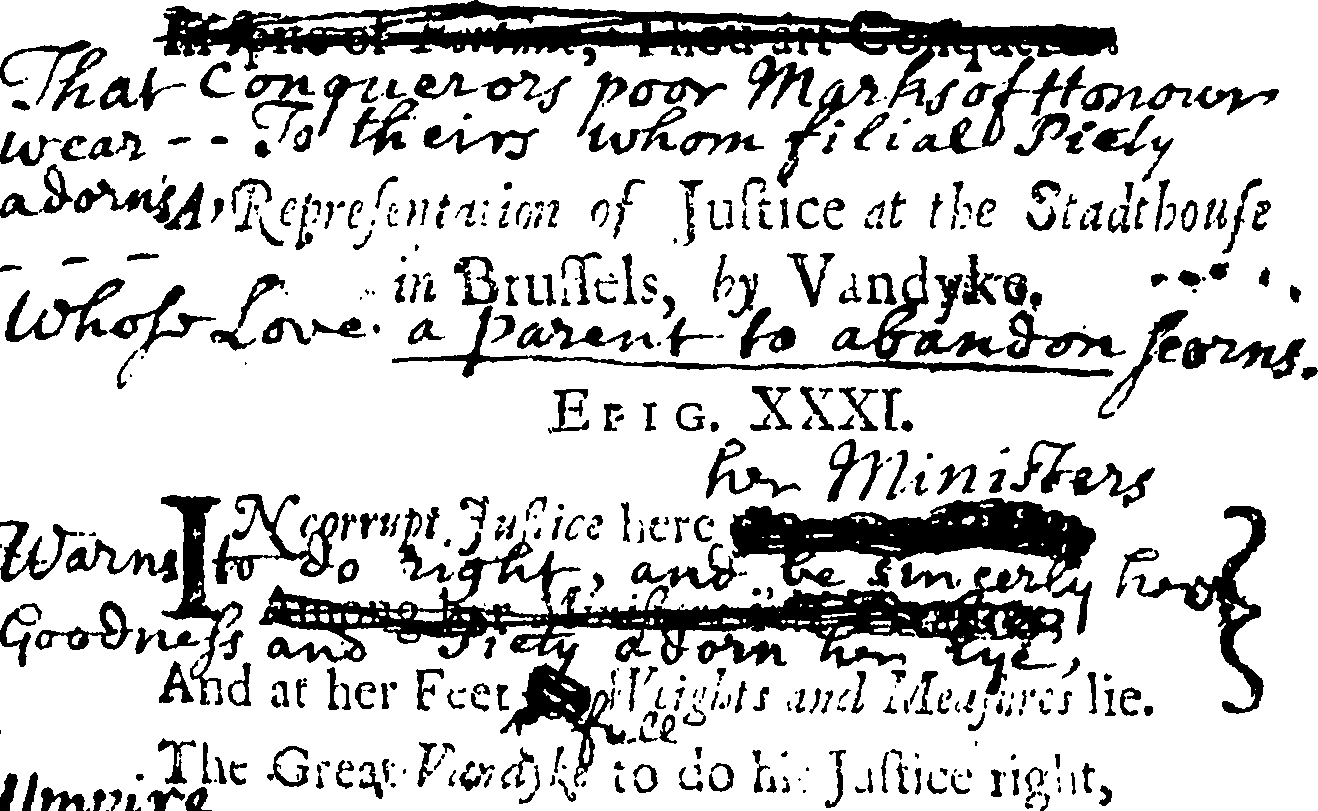 In spite of Fortune, Thou art Conqueror.
That Conquerors poor Marks of Honour
wear - - To theirs whom filial Piety
adorns, A Repreſentation of Juſtice at the Stadthouſe
- - - in Bruſſels, by Vandyke.
Whoſe Love a parent to abandon ſcorns.
EPIG. XXXI.
her Miniſters
INcorrupt Juſtice here
Warns to do right, and be
Among her
Goodneſs and Piety adorn her Eye,
And at her Feet Weights and Meaſures lie.
The Great Vandyke to do his Juſtice right,
Umpire